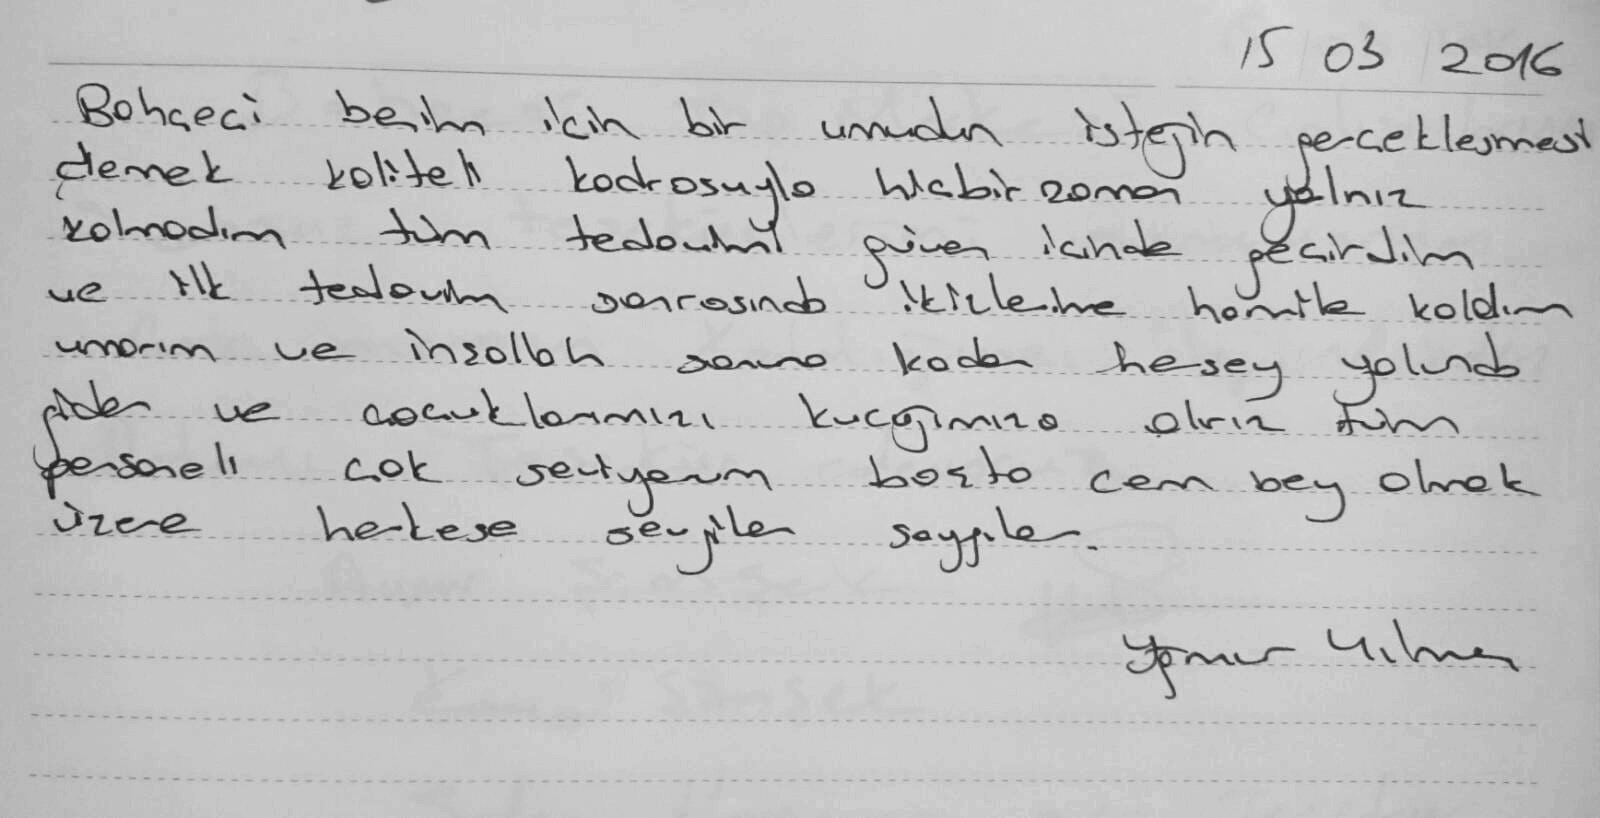 15/03/2016
Bahçeci benim için bir umudun isteğin gerçekleşmesi
demek kaliteli kadrosuyla hiçbir zaman yalnız
kalmadım tüm tedavimi güven içinde geçirdim
ve ilk tedavim sonrasında ikizlerime hamile kaldım
umarım ve inşallah sonuna kadar herşey yolunda
gider ve çocuklarımızı kucağımıza alırız tüm
personeli çok seviyorum başta cem bey olmak
üzere herkese sevgiler saygılar.
Yağmur Yılmaz